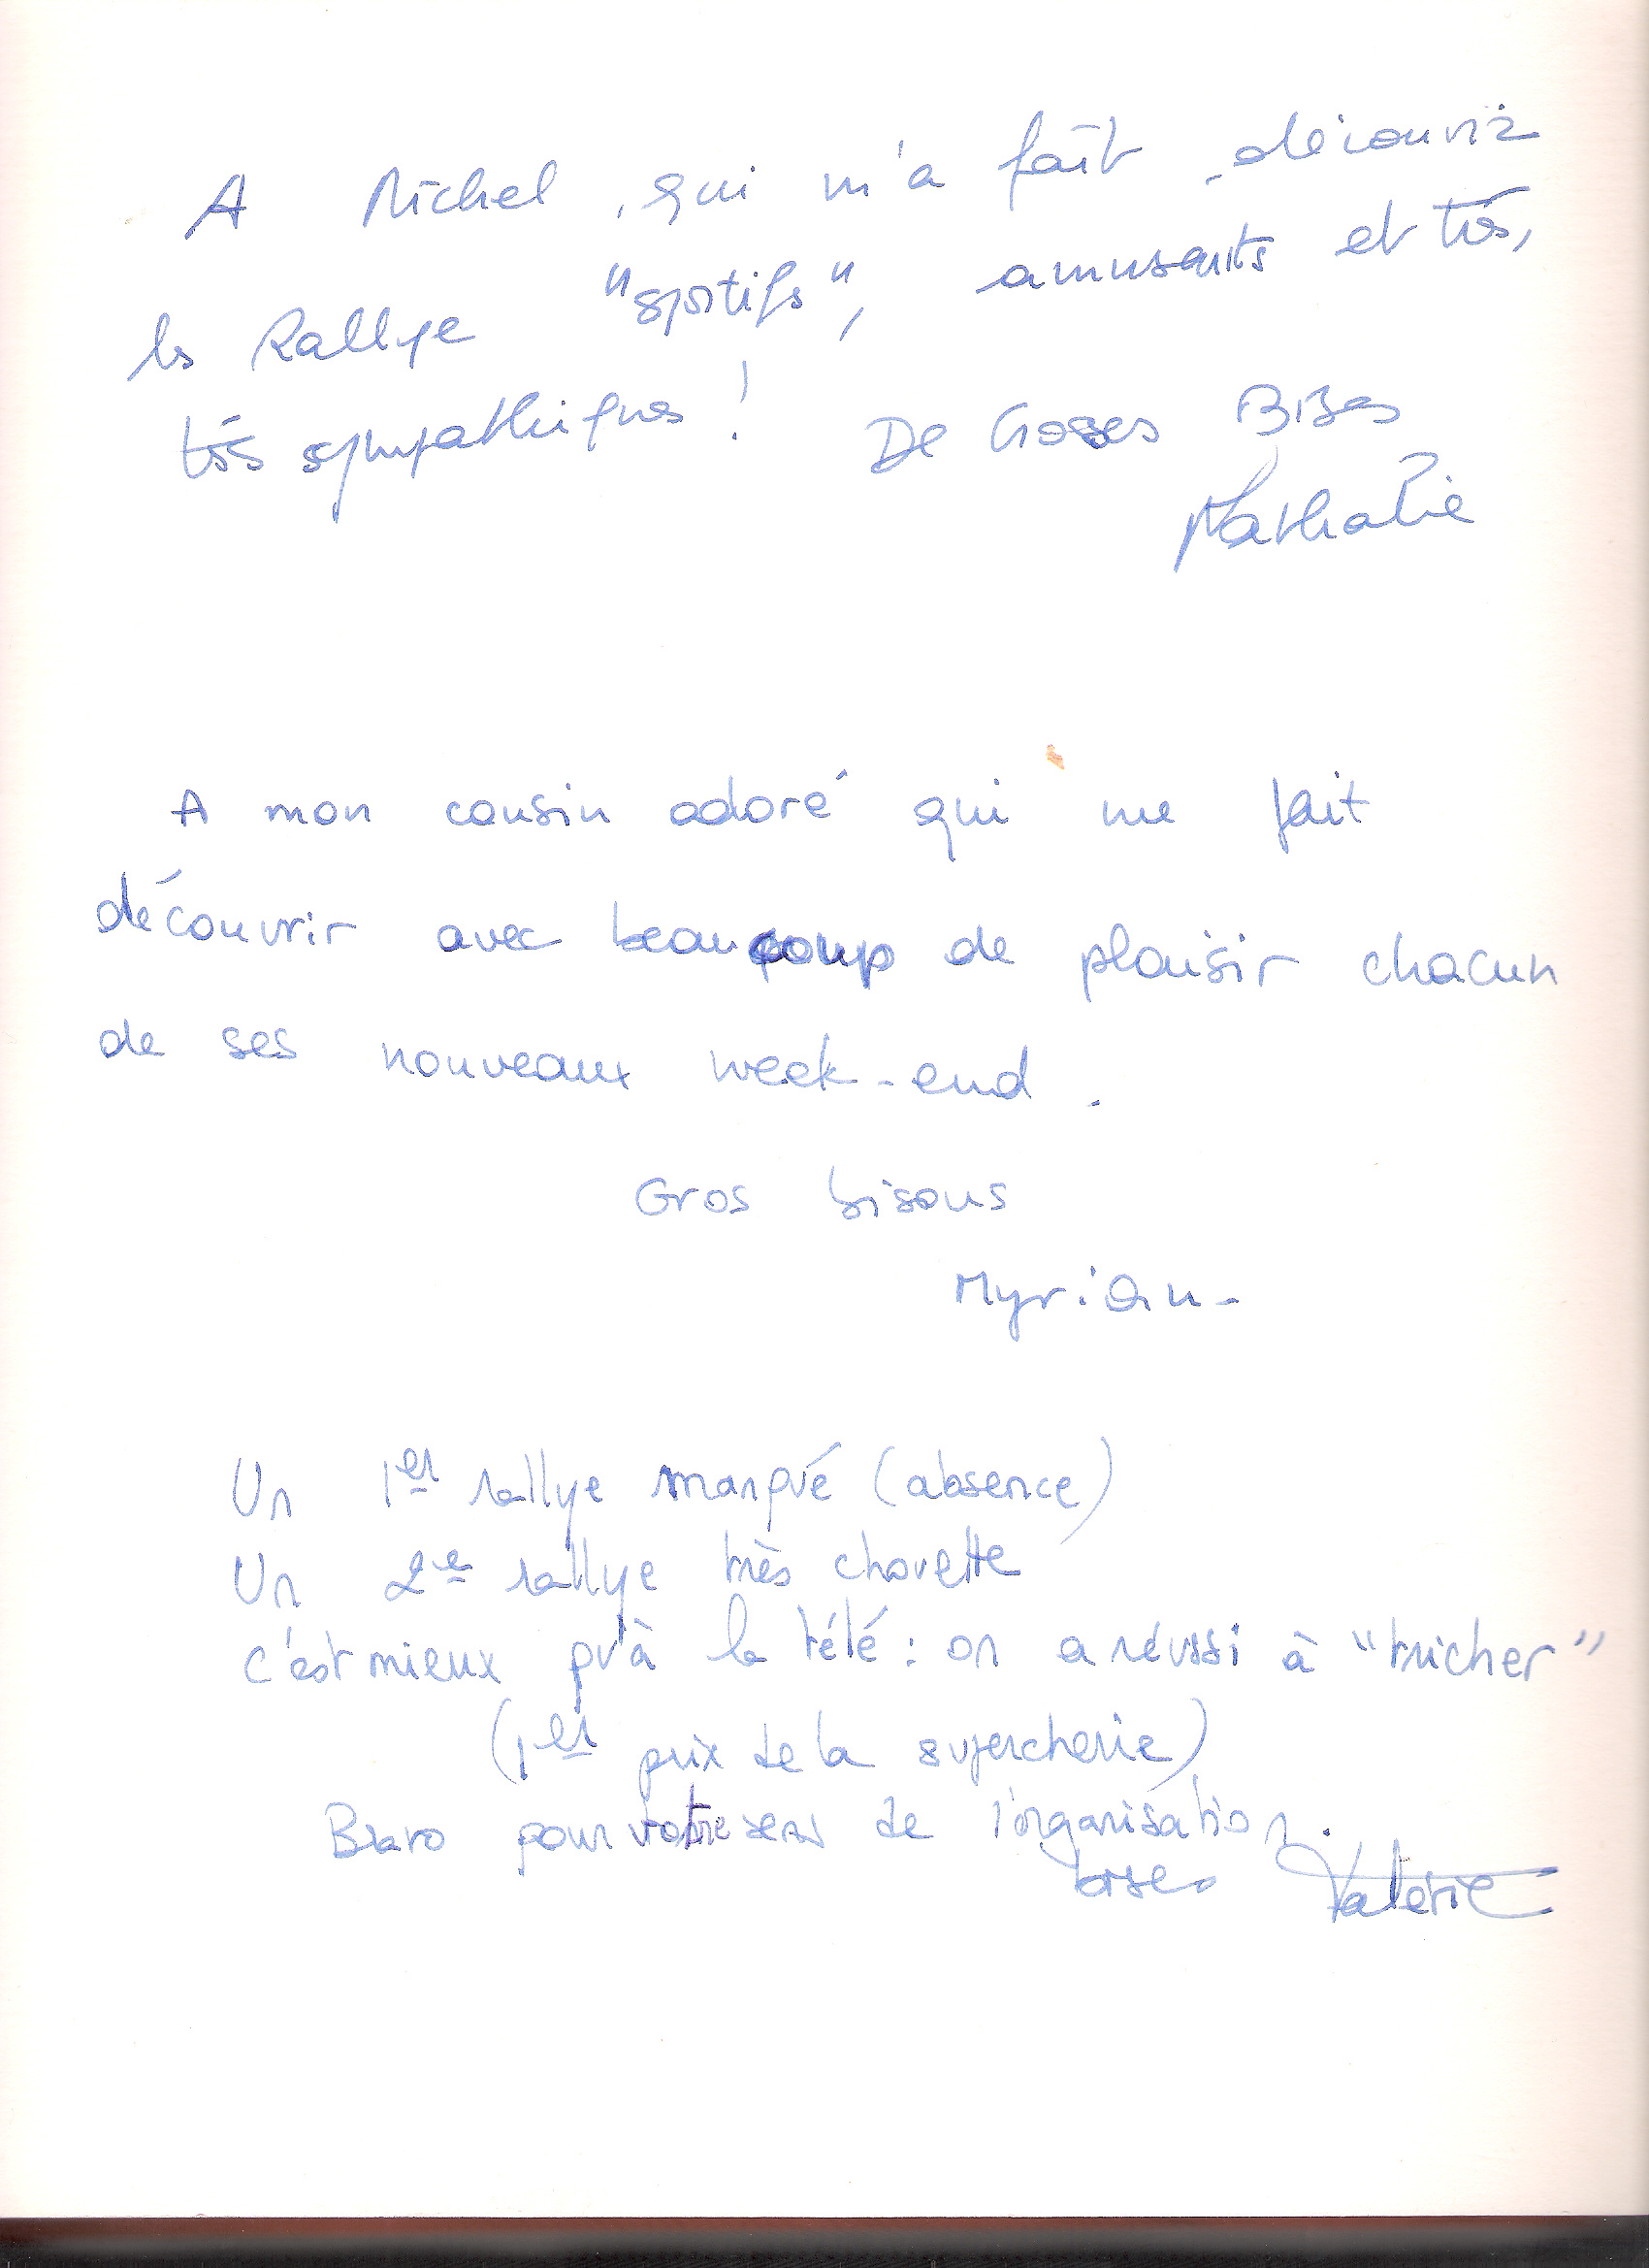 A Michel, qui m'a fait découvrir
les Rallye "sportifs", amusants et très,
très sympathiques ! De Grosses Bises
Nathalie
A mon cousin adoré qui me fait
découvrir avec beaucoup de plaisir chacun
de ses nouveaux week-end.
Gros bisous
Myriam-
Un 1er rallye manqué (absence)
Un 2e rallye très chouette
c'est mieux qu'à la télé : on a réussi à "tricher"
(1er prix de la supercherie)
Bravo pour votre sens de l'organisation.
bises Valérie